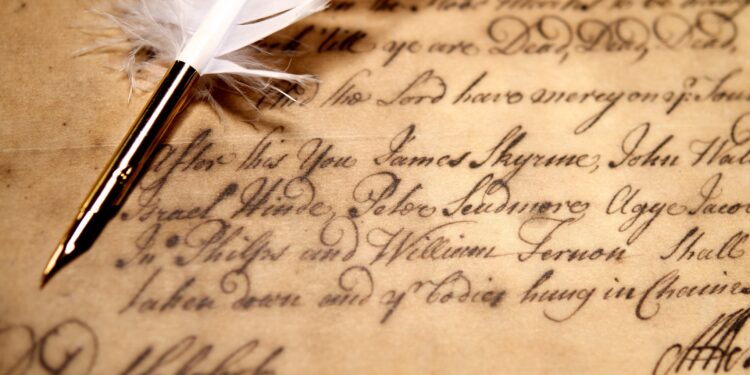 ye are Dead, Dead, Dead,
the Lord have mercy on yr. Sou
After this You James Skyrme, John Wal
Israel Hinde, Peter Scudmore, Agge Jacob
Jn. Philps and William Fernon Shall
taken down and yr bodies hung in Chaines